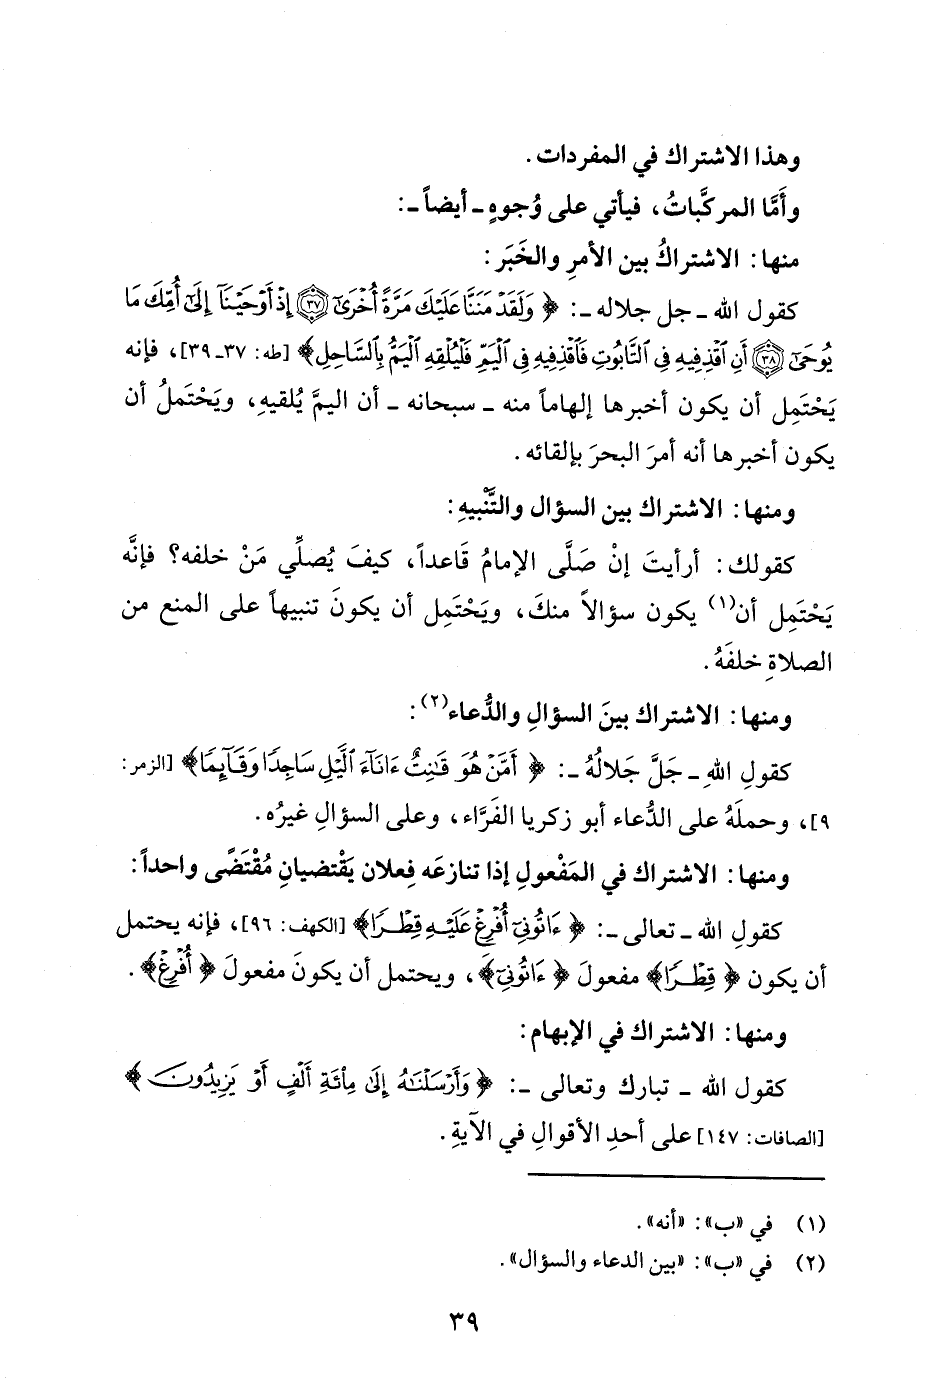 وهذا الاشتراك في المفردات.
وأَمَّا المركَّباتُ، فيأتي على وُجوهٍ ـ أيضاً ـ:
منها: الاشتراكُ بين الأمرِ والخَبَر:
كقول الله ـ جل جلاله ـ: ﴿ وَلَقَدْ مَنَنَّا عَلَيْكَ مَرَّةً أُخْرَىٰٓ ٣٧ إِذْ أَوْحَيْنَآ إِلَىٰٓ أُمِّكَ مَا
يُوحَىٰٓ ٣٨ أَنِ ٱقْذِفِيهِ فِى ٱلتَّابُوتِ فَٱقْذِفِيهِ فِى ٱلْيَمِّ فَلْيُلْقِهِ ٱلْيَمُّ بِٱلسَّاحِلِ﴾ [طه: ٣٧ـ٣٩]، فإنه
يَحْتَمِل أن يكون أخبرها إلهاماً منه ـ سبحانه ـ أن اليمَّ يُلقيهِ، ويَحْتملُ أن
يكون أخبرها أنه أمرَ البحرَ بإلقائه.
ومنها: الاشتراك بين السؤال والتَّنْبيهِ:
كقولك: أرأيتَ إنْ صَلَّى الإمامُ قَاعداً، كيفَ يُصلِّي مَنْ خلفه؟ فإنَّه
يَحْتَمِل أن(١) يكون سؤالاً منكَ، ويَحْتَمِل أن يكونَ تنبيهاً على المنع من
الصلاةِ خلفَهُ.
ومنها: الاشتراك بينَ السؤالِ والدُّعاء(٢):
كقولِ اللهِ ـ جَلَّ جَلالُهُ ـ: ﴿ أَمَّنْ هُوَ قَـٰنِتٌ ءَانَآءَ ٱلَّيْلِ سَاجِدًا وَقَآئِمًا﴾ [الزمر:
٩]، وحملَهُ على الدُّعاء أبو زكريا الفَرَّاء، وعلى السؤالِ غيرُه.
ومنها: الاشتراك في المَفْعولِ إذا تنازعَه فِعلان يَقْتضيانِ مُقْتَضًى واحداً:
كقولِ الله ـ تعالى ـ: ﴿ ءَاتُونِىٓ أُفْرِغْ عَلَيْهِ قِطْرًا﴾ [الكهف: ٩٦]، فإنه يحتمل
أن يكون ﴿ قِطْرًا﴾ مفعولَ ﴿ ءَاتُونِىٓ﴾، ويحتمل أن يكونَ مفعولَ ﴿ أُفْرِغْ﴾.
ومنها: الاشتراك في الإبهام:
كقول الله ـ تبارك وتعالى ـ: ﴿ وَأَرْسَلْنَـٰهُ إِلَىٰ مِا۟ئَةِ أَلْفٍ أَوْ يَزِيدُونَ ﴾
[الصافات: ١٤٧] على أحدِ الأقوالِ في الآيةِ.
(١) في «ب»: «أنه».
(٢) في «ب»: «بين الدعاء والسؤال».
٣٩